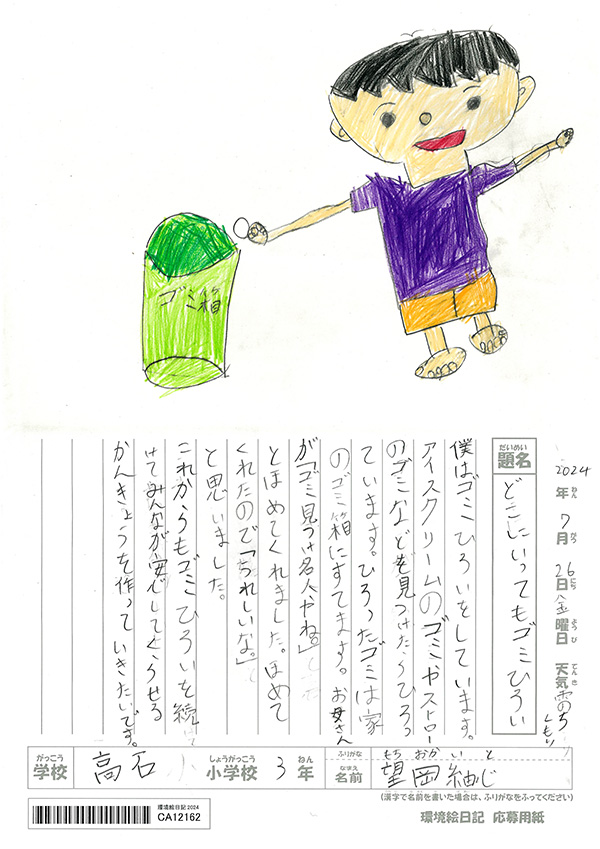 ゴミ箱
2024年ねん 7月がつ 26日にち 金曜日ようび 天気てんき
だいめい
題名
どこにいってもゴミひろい
僕はゴミひろいをしています。
アイスクリームのゴミやストロー
のゴミなどを見つけたらひろっ
ています。ひろったゴミは家
のゴミ箱にすてます。お母さん
が「ゴミ見つけ名人やね。」
とほめてくれました。ほめて
くれたので「うれしいな。」
と思いました。
これからもゴミひろいを続
けてみんなが安心してくらせる
かんきょうを作っていきたいです。
がっこう しょうがっこう ねん ふりがな もちおか いと
学校 高石 小学校 3年 なまえ 名前 望岡紬
(漢字で名前を書いた場合は、ふりがなをふってください)
環境絵日記2024
CA12162
環境絵日記 応募用紙